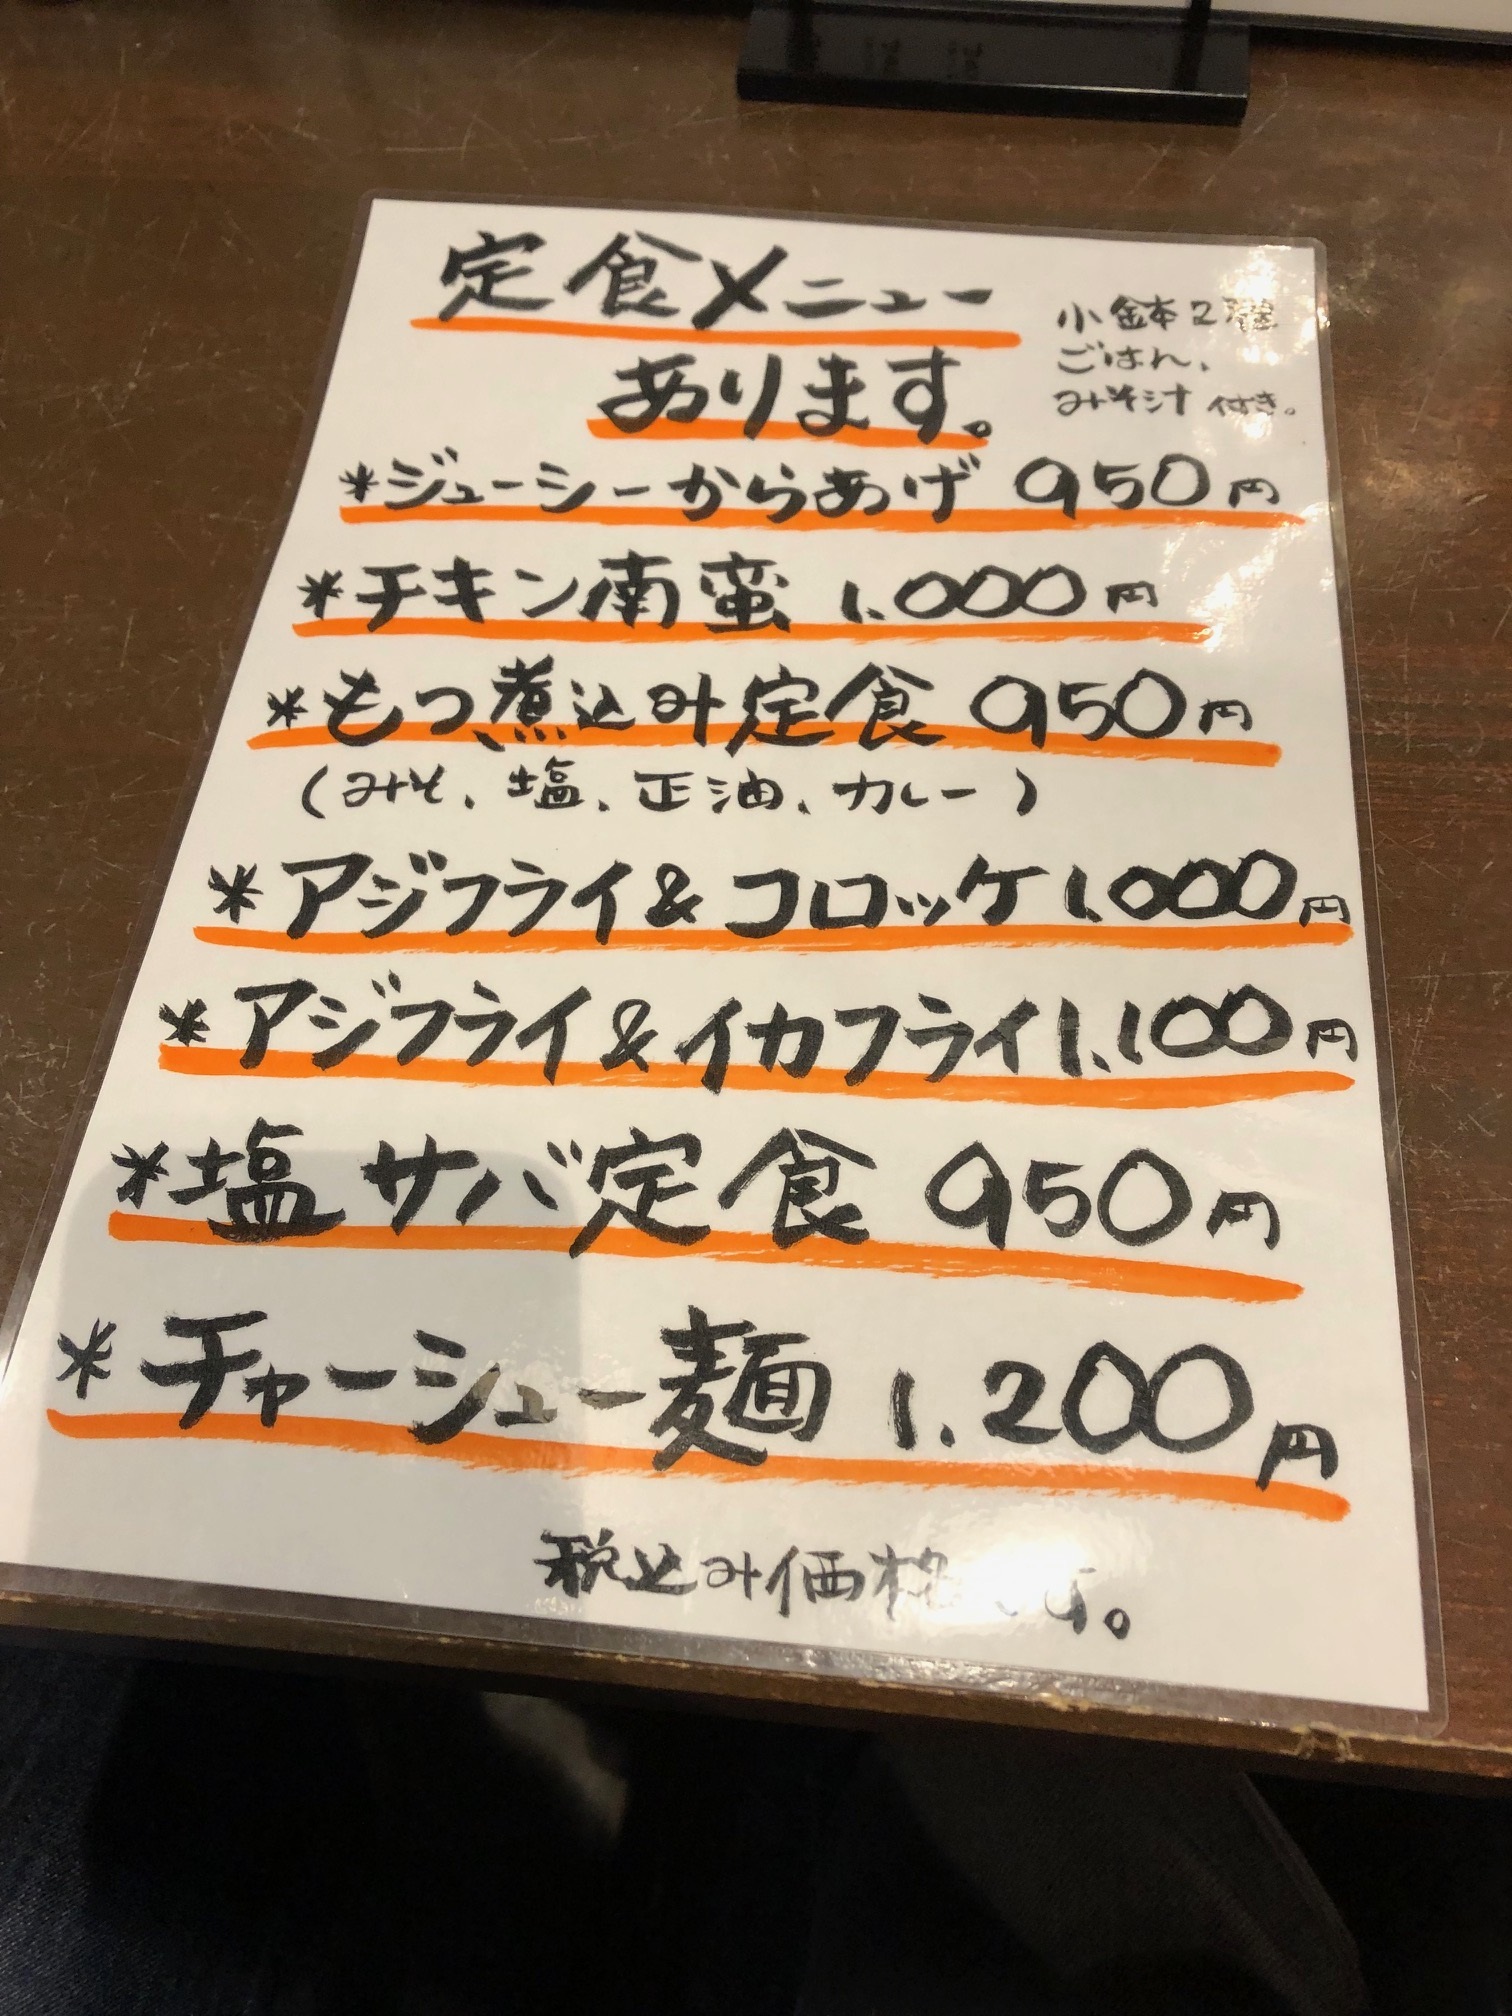 定食メニュー
あります。
小鉢2種
ごはん、
みそ汁 付き。
*ジューシーからあげ 950円
*チキン南蛮 1.000円
*もつ煮込み定食 950円
(みそ、塩、正油、カレー)
*アジフライ&コロッケ 1.000円
*アジフライ&イカフライ 1.100円
*塩サバ定食 950円
*チャーシュー麺 1.200円
税込み価格です。